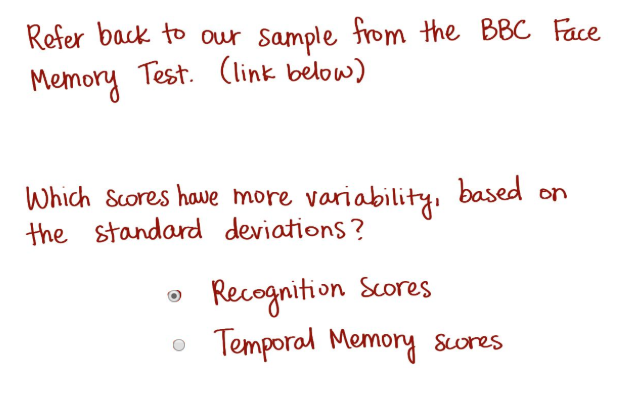 Refer back to our sample from the BBC Face
Memory Test. (link below)
Which scores have more variability, based on
the standard deviations?
Recognition Scores
Temporal Memory scores